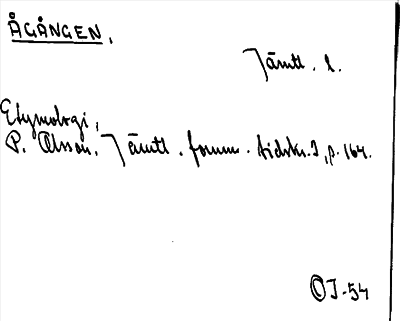 ÅGÅNGEN.
Jämtl. l.
Etymologi,
P. Olsson. Jämtl. fornm. tidskr. I, p. 164.
OJ-54